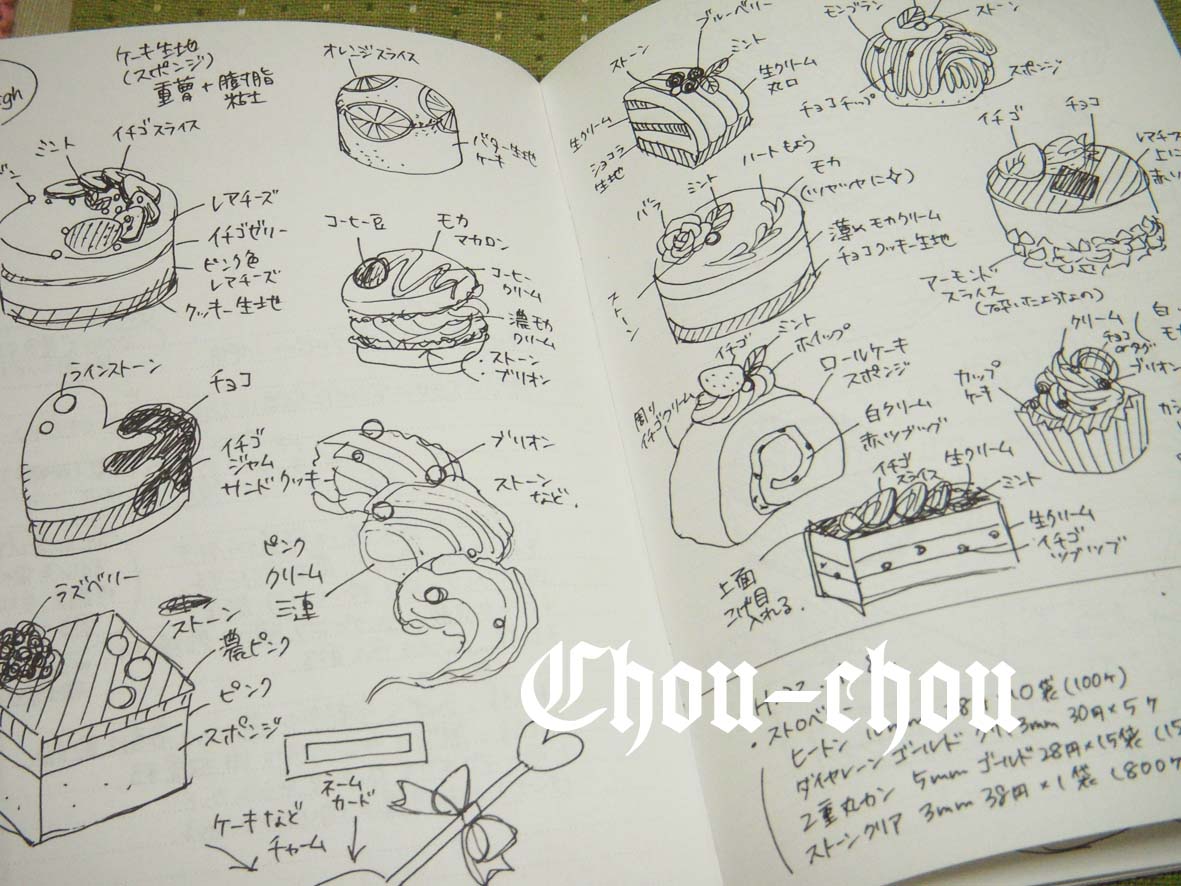 ケーキ生地
(スポンジ)
重曹+樹脂
粘土
オレンジスライス
バター生地
ケーキ
ミント
イチゴスライス
レアチーズ
イチゴゼリー
ピンク色
レアチーズ
クッキー生地
コーヒー豆
モカ
マカロン
コーヒー
クリーム
濃モカ
クリーム
・ストーン
・ブリオン
ラインストーン
チョコ
イチゴ
ジャム
サンドクッキー
ブリオン
ストーン
など.
ピンク
クリーム
三連
ラズベリー
ストーン
濃ピンク
ピンク
スポンジ
ネーム
カード
ケーキなど
チャーム
ブルーベリー
ストーン
ミント
生クリーム
丸口
生クリーム
ショコラ
生地
モンブラン
ストーン
スポンジ
チョコチップ
イチゴ
チョコ
レアチーズ
上に
アーモンド
スライス
(砕いたようなもの)
バラ
ミント
ハートもよう
モカ
(ツヤツヤに☆)
薄めモカクリーム
チョコクッキー生地
ストーン
イチゴ
ミント
ホイップ
ロールケーキ
スポンジ
イチゴクリーム
白クリーム
赤ツブツブ
クリーム
チョコ
ブリオン
カップ
ケーキ
イチゴ
スライス
生クリーム
ミント
生クリーム
イチゴ
ツブツブ
上面
こげ目
入れる.
Chou-chou
・ストロベリー
10袋(100ケ)
ヒートン
3mm 30円×5ケ
5mm ゴールド 28円×15袋
2重丸カン
ストーンクリア 3mm 38円×1袋 (800ケ